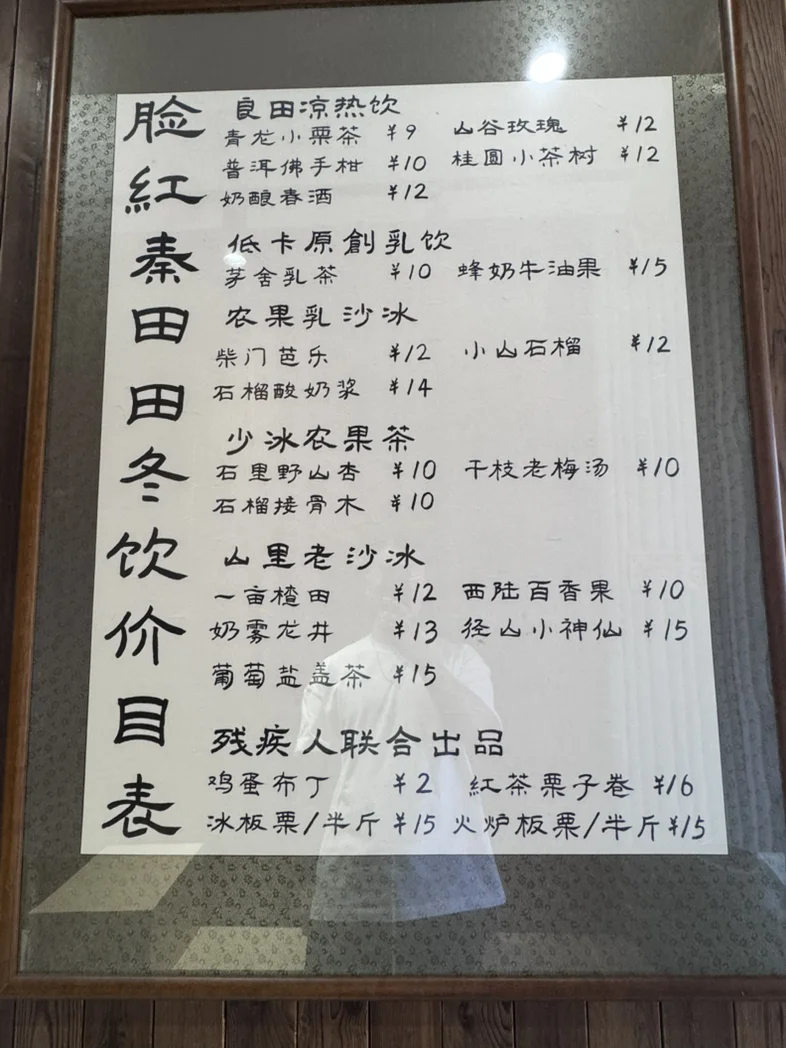 脸红秦田田冬饮价目表
良田凉热饮
青龙小栗茶 ¥9 山谷玫瑰 ¥12
普洱佛手柑 ¥10 桂圆小茶树 ¥12
奶酿春酒 ¥12
低卡原創乳饮
茅舍乳茶 ¥10 蜂奶牛油果 ¥15
农果乳沙冰
柴门芭乐 ¥12 小山石榴 ¥12
石榴酸奶浆 ¥14
少冰农果茶
石里野山杏 ¥10 干枝老梅汤 ¥10
石榴接骨木 ¥10
山里老沙冰
一亩楂田 ¥12 西陆百香果 ¥10
奶雾龙井 ¥13 径山小神仙 ¥15
葡萄盐盖茶 ¥15
残疾人联合出品
鸡蛋布丁 ¥2 紅茶栗子卷 ¥16
冰板栗/半斤 ¥15 火炉板栗/半斤 ¥15